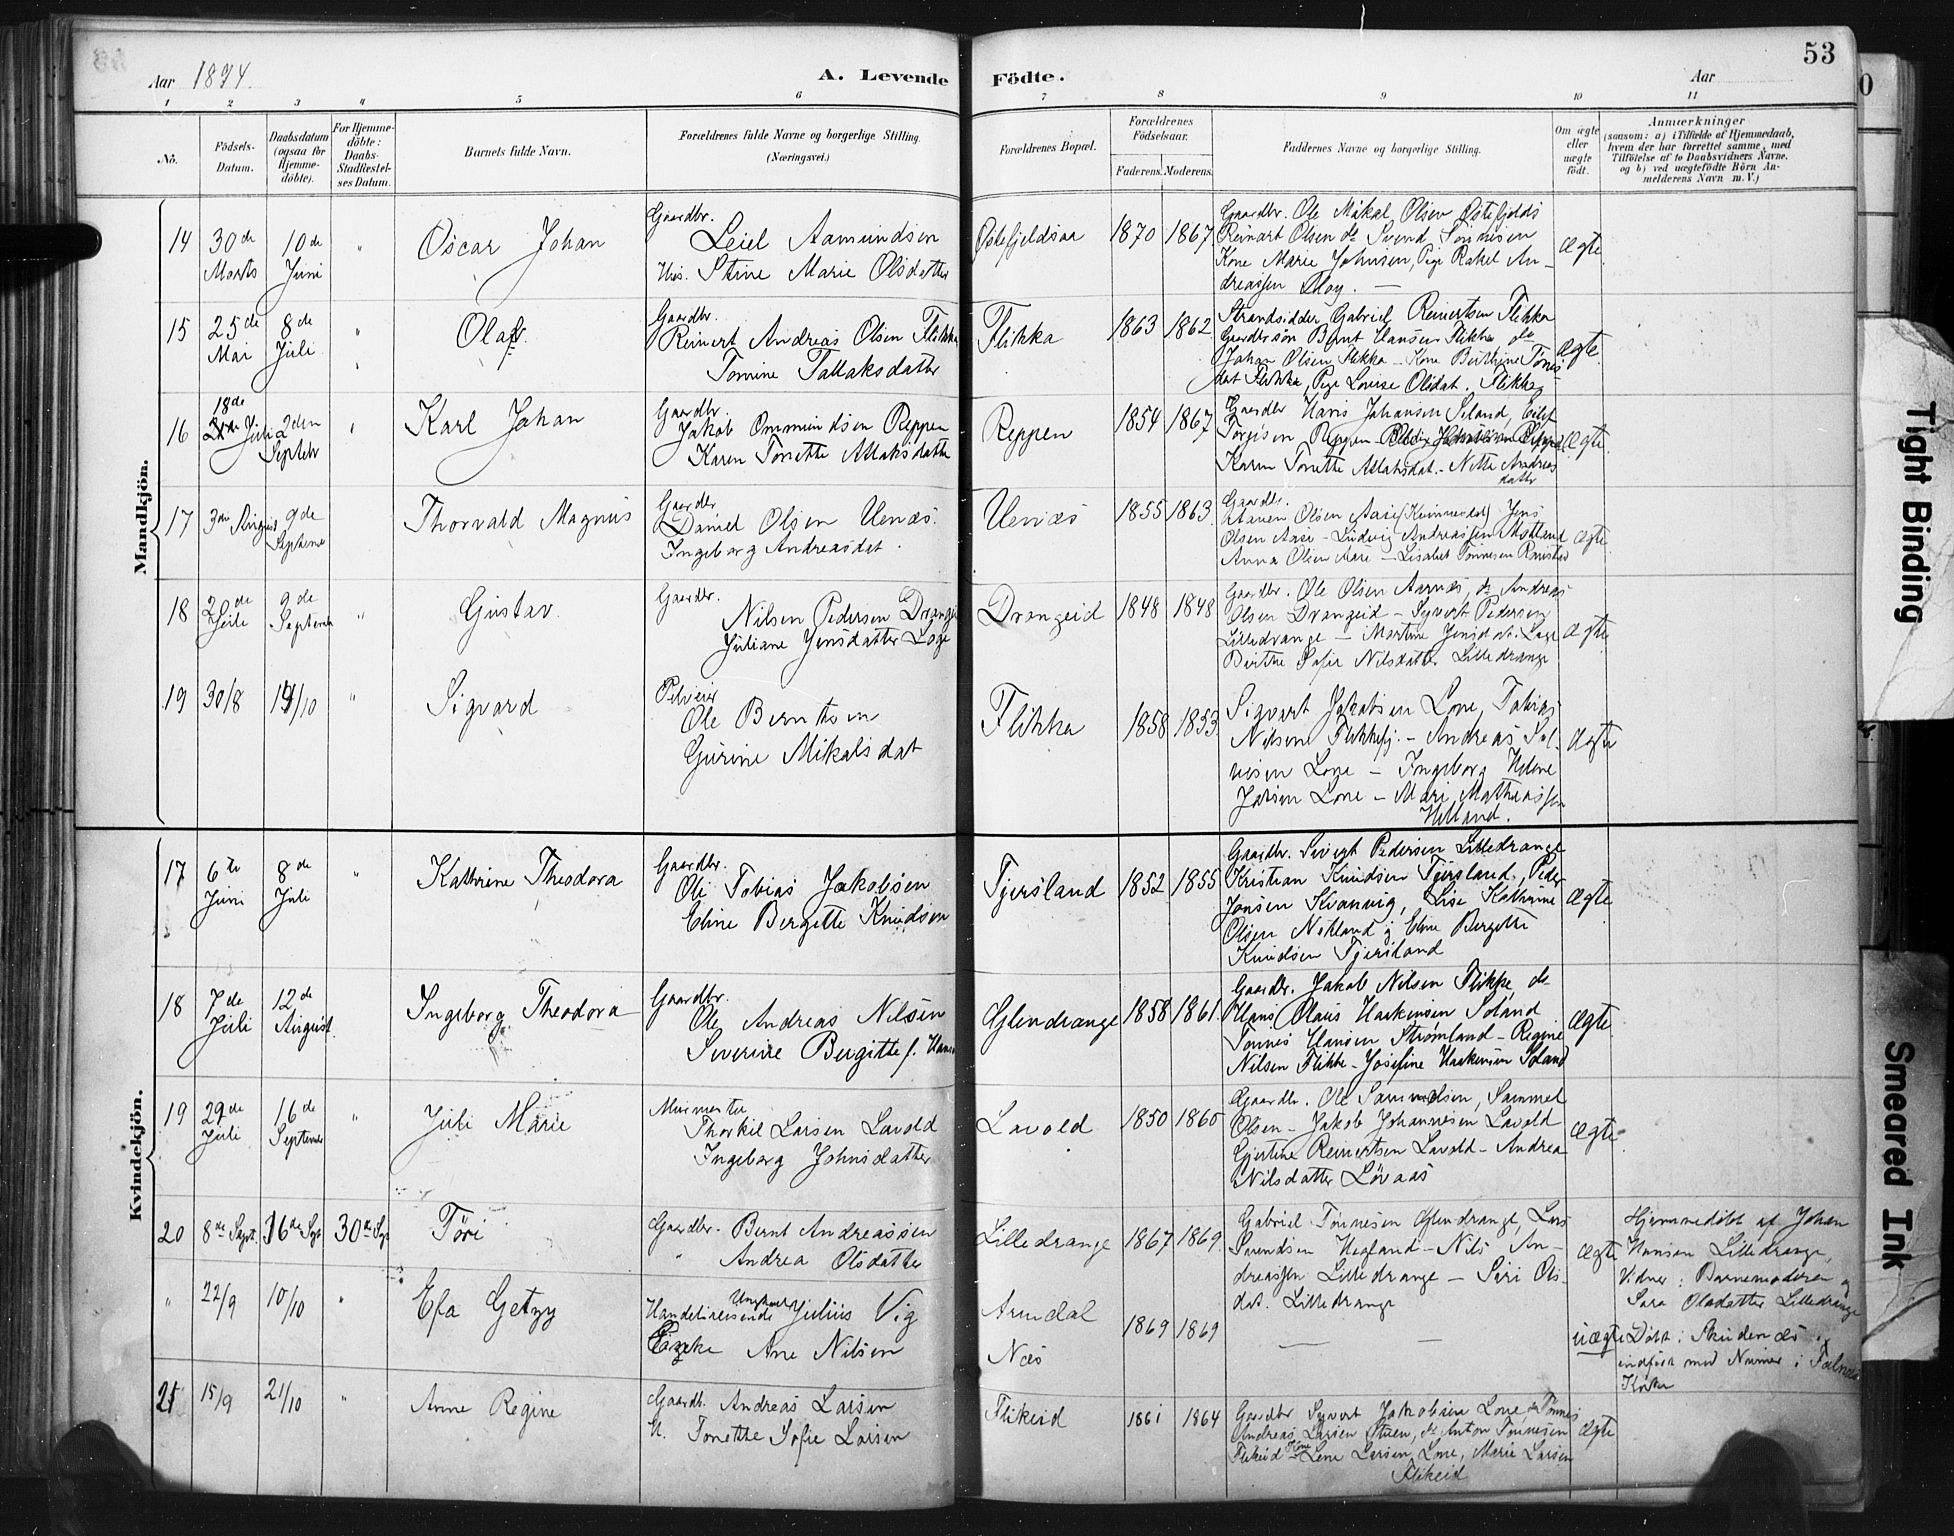 53
Aar 1894.
A. Levende Födte.
Aar
1 2 3 4 5 6 7 8 9 10 11
No.
Födsels-Datum.
Daabsdatum (ogsaa for Hjemme-döbte).
For Hjemme-döbte: Daabs-Stadfæstel-ses Datum.
Barnets fulde Navn.
Forældrenes fulde Navne og borgerlige Stilling. (Næringsvei.)
Forældrenes Bopæl.
Forældrenes Födselsaar.
Faderens. Moderens.
Faddernes Navne og borgerlige Stilling.
Om ægte eller uægte födt.
Anmærkninger
(saasom: a) i Tilfælde af Hjemmedaab, hvem der har forrettet samme, med Tilföielse af to Daabsvidners Navne, og b) ved uægtefödte Börn Anmelderens Navn m. V.)
Mandkjön.
14 30de Marts 10de Juni " Oscar Johan
Gaardbr. Leiel Aamundsen
Hus. Stine Marie Olsdatter
Østefjeldsaa 1870 1867
Gaardbr. Ole Mikal Olsen Østefjelds
Reinart Olsen do Svend Tønnesen
Kone Marie Johnsen, Pige Rakel An-
dreassen
ægte
15 25de Mai 8de Juli " Olaf
Gaardbr.
Reinert Andreas Olsen Flikka
Tomine Tallaksdatter
Flikka 1863 1862
Strandsidder Gabriel Reinertsen Flikka
Gaardbrsøn Bernt Hansen Flikka do
Johan Olsen Flikka - Kone Berthine Tønnes
dat Flikka, Pige Lovise Olsdat. Flikka
ægte
16 18de Juli 2den Septebr " Karl Johan
Gaardbr.
Jakob Ommundsen Reppen
Karen Tonette Atlaksdatter
Reppen 1854 1867
Gaardbr Hans Johansen
Torgisen Reppen
Karen Tonette Atlaksdat. - Nette Andreas
datter
ægte
17 3die August 9de Septembr Thorvald Magnus
Gaardbr.
Daniel Olsen Uenæs.
Ingeborg Andreasdat.
Uenæs 1855 1863
Gaardbr.
Olsen Aase Jens
Olsen Aase - Ludvig Andreassen Mostland
Anna Olsen Aase - Lisabet Tønnesen
ægte
18 20de Juli 9de September " Gustav
Gaardbr.
Nilsen Pedersen Drangeid
Juliane Jensdatter Loge
Drangeid 1848 1848
Gaardbr. Ole Olsen Aarnæs, do Andreas
Olsen Drangeid - Syvert Pedersen
Lilledrange - Martine Jensdat. Loge
Berthe Sofie Nilsdatter Lilledrange
ægte
19 30/8 14/10 " Sigvard
Ole Berntsen
Gurine Mikalsdat
Flikka 1858 1853
Sigvart Jakobsen Lone, Tobias
Nilsen Flikkefj. - Andreas Sal-
vesen Lone - Ingeborg Helene
Jaksen Lone - Mari Mathiassen
Helland.
ægte
Kvindekjön.
17 6te Juni 8de Juli " Kathrine Theodora
Gaardbr.
Ole Tobias Jakobsen
Eline Bergitte Knudsen
Tjersland 1852 1855
Gaardbr. Sivert Pedersen Lilledrange
Kristian Knudsen Tjersland, Peder
Jansen Kvanvig, Lise Kathrine
Olsen Nekland og Eline Bergitte
Knudsen Tjersland
ægte
18 7de Juli 12de August Ingeborg Theodora
Gaardbr.
Ole Andreas Nilsen
Severine Bergitte f. Hansen
Glendrange 1858 1861
Gaardbr. Jakob Nilsen Flikke do
Hans Olaus Haakensen Soland
Tønnes Hansen Strømland - Regine
Nilsen Flikke - Josefine Haakensen Soland
ægte
19 29de Juli 16de September " Juli Marie
Murmester
Thorkil Larsen Lavold
Ingeborg Johnsdatter
Lavold 1850 1860
Gaardbr. Ole Samuelsen, Sammel
Olsen - Jakob Johannesen Lavold
Gjertine Reinertsen Lavold - Andrea
Nilsdatter Løvaas
ægte
20 8de Sept. 16de Sept 30de Sept Töri
Gaardbr. Bernt Andreassen
" Andrea Olsdatter
Lilledrange 1867 1869
Gabriel Tønnesen Glendrange, Lars
Svendsen Hegland - Nils An-
dreassen Lilledrange - Siri Ols-
dat. Lilledrange
ægte
Hjemmedöbt af Johan
Hansen Lilledrange,
Vidner: Barnemoderen og
Sara Olsdatter Lilledrange
" 22/9 10/10 " Efa Getzy
Handelsreisende Ungkarl Julius Vig
Enke Ane Nilsen
Arendal
Næs
1869 1869
— —
uægte
Döbt i Skudenæs og
indført med Numer i Falnæs
Kirke
21 15/9 21/10 " Anne Regine
Gaardbr. Andreas Larsen
H. Tonette Sofie Larsen
Flikeid 1861 1864
Gaardbr Syvert Jakobsen Lone, do Tønnes
Andreas Larsen Stuen, do Anton Tønnesen
Flikeid Kone Lene Larsen Lone, Marie Larsen
Flikeid
ægte
Tight Binding
Smeared Ink